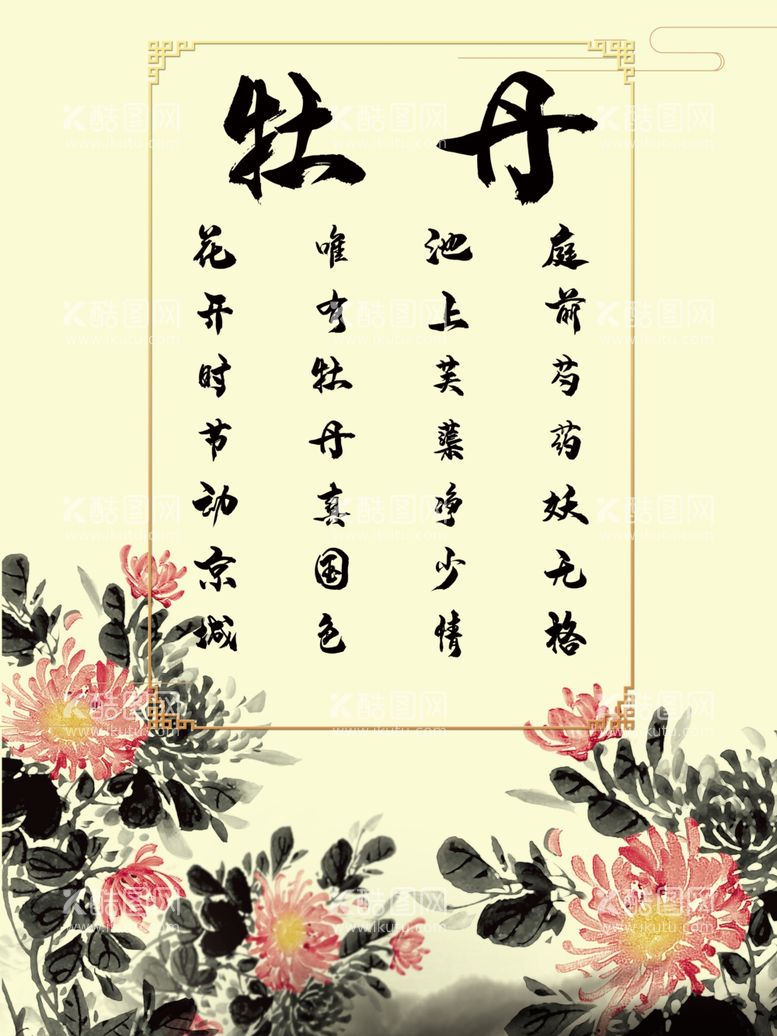 牡丹
庭前芍药妖无格
池上芙蕖净少情
唯有牡丹真国色
花开时节动京城
酷图网
www.ikutu.com